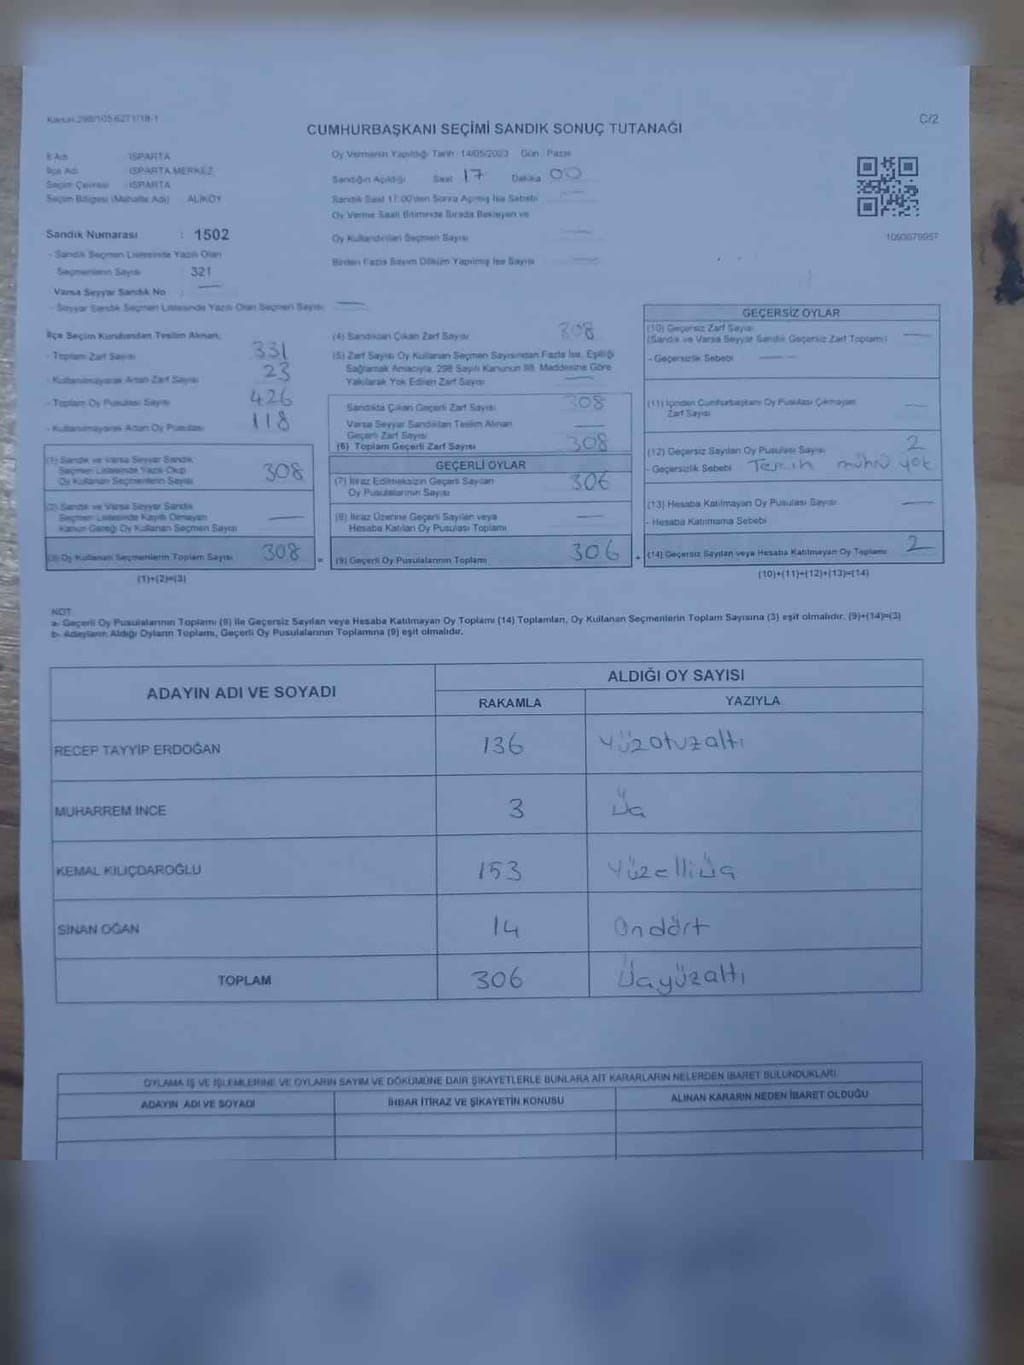 Kanun:298/105-6271/18-1
C/2
CUMHURBAŞKANI SEÇİMİ SANDIK SONUÇ TUTANAĞI
İl Adı : ISPARTA
İlçe Adı : ISPARTA MERKEZ
Seçim Çevresi : ISPARTA
Seçim Bölgesi (Mahalle Adı) ALİKÖY
Sandık Numarası : 1502
- Sandık Seçmen Listesinde Yazılı Olan
Seçmenlerin Sayısı 321
Varsa Seyyar Sandık No :
- Seyyar Sandık Seçmen Listesinde Yazılı Olan Seçmen Sayısı
Oy Vermenin Yapıldığı Tarih :14/05/2023 Gün : Pazar
Sandığın Açıldığı Saat 17 Dakika 00
Sandık Saat 17:00'den Sonra Açılmış İse Sebebi
Oy Verme Saati Bitiminde Sırada Bekleyen ve
Oy Kullandırılan Seçmen Sayısı
Birden Fazla Sayım Döküm Yapılmış İse Sayısı
1050070057
İlçe Seçim Kurulundan Teslim Alınan;
- Toplam Zarf Sayısı 331
- Kullanılmayarak Artan Zarf Sayısı 23
- Toplam Oy Pusulası Sayısı 426
- Kullanılmayarak Artan Oy Pusulası 118
(1) Sandık ve Varsa Seyyar Sandık
Seçmen Listesinde Yazılı Olup
Oy Kullanan Seçmenlerin Sayısı 308
(2) Sandık ve Varsa Seyyar Sandık
Seçmen Listesinde Kayıtlı Olmayan
Kanun Gereği Oy Kullanan Seçmen Sayısı
(3) Oy Kullanan Seçmenlerin Toplam Sayısı 308
(1)+(2)=(3)
(4) Sandıktan Çıkan Zarf Sayısı 308
(5) Zarf Sayısı Oy Kullanan Seçmen Sayısından Fazla İse, Eşitliği
Sağlamak Amacıyla, 298 Sayılı Kanunun 98. Maddesine Göre
Yakılarak Yok Edilen Zarf Sayısı
Sandıkta Çıkan Geçerli Zarf Sayısı 308
Varsa Seyyar Sandıktan Teslim Alınan
Geçerli Zarf Sayısı
(6) Toplam Geçerli Zarf Sayısı 308
GEÇERLİ OYLAR
(7) İtiraz Edilmeksizin Geçerli Sayılan
Oy Pusulalarının Sayısı 306
(8) İtiraz Üzerine Geçerli Sayılan veya
Hesaba Katılan Oy Pusulası Toplamı
= (9) Geçerli Oy Pusulalarının Toplamı 306
GEÇERSİZ OYLAR
(10) Geçersiz Zarf Sayısı
(Sandık ve Varsa Seyyar Sandık Geçersiz Zarf Toplamı)
- Geçersizlik Sebebi
(11) İçinden Cumhurbaşkanı Oy Pusulası Çıkmayan
Zarf Sayısı
(12) Geçersiz Sayılan Oy Pusulası Sayısı 2
- Geçersizlik Sebebi Tercih mührü yok
(13) Hesaba Katılmayan Oy Pusulası Sayısı
- Hesaba Katılmama Sebebi
+ (14) Geçersiz Sayılan veya Hesaba Katılmayan Oy Toplamı 2
(10)+(11)+(12)+(13)=(14)
NOT:
a- Geçerli Oy Pusulalarının Toplamı (9) ile Geçersiz Sayılan veya Hesaba Katılmayan Oy Toplamı (14) Toplamları, Oy Kullanan Seçmenlerin Toplam Sayısına (3) eşit olmalıdır. (9)+(14)=(3)
b- Adayların Aldığı Oyların Toplamı, Geçerli Oy Pusulalarının Toplamına (9) eşit olmalıdır.
ADAYIN ADI VE SOYADI
ALDIĞI OY SAYISI
RAKAMLA YAZIYLA
RECEP TAYYİP ERDOĞAN 136 Yüzotuzaltı
MUHARREM İNCE 3 Üç
KEMAL KILIÇDAROĞLU 153 Yüzelliüç
SİNAN OĞAN 14 Ondört
TOPLAM 306 Üçyüzaltı
OYLAMA İŞ VE İŞLEMLERİNE VE OYLARIN SAYIM VE DÖKÜMÜNE DAİR ŞİKAYETLERLE BUNLARA AİT KARARLARIN NELERDEN İBARET BULUNDUKLARI
ADAYIN ADI VE SOYADI İHBAR İTİRAZ VE ŞİKAYETİN KONUSU ALINAN KARARIN NEDEN İBARET OLDUĞU